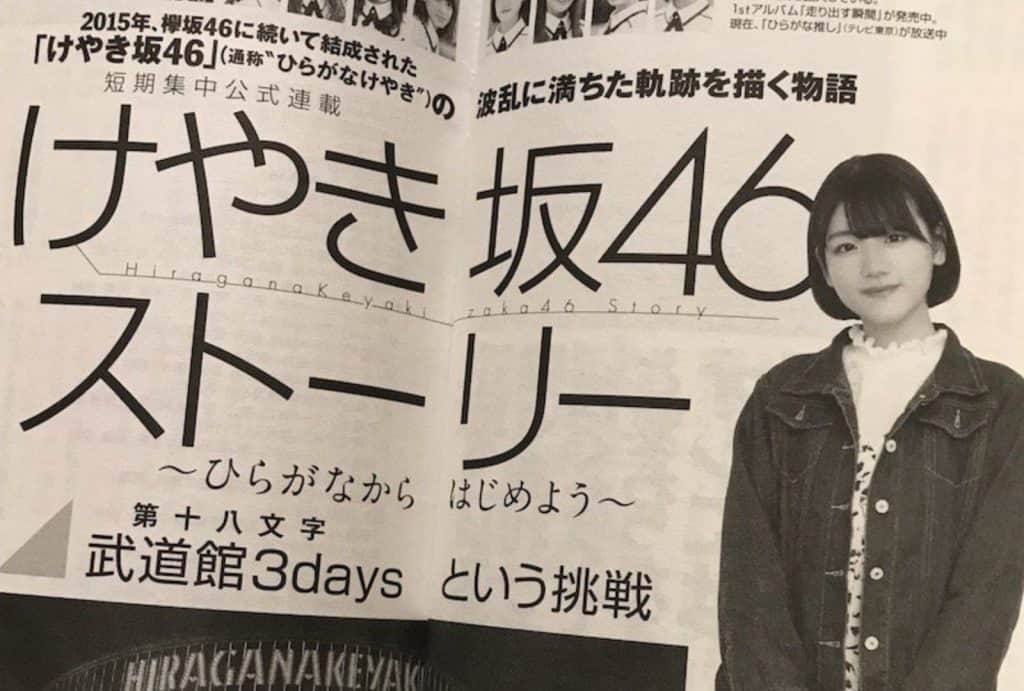 1stアルバム「走り出す瞬間」が発売中。
現在、「ひらがな推し」(テレビ東京)が放送中
2015年、欅坂46に続いて結成された
「けやき坂46」(通称〝ひらがなけやき〟)の 波乱に満ちた軌跡を描く物語
短期集中公式連載
けやき坂46
HiraganaKeyakizaka46 Story
ストーリー
～ひらがなから はじめよう～
第十八文字
武道館3days という挑戦
HIRAGANAKEYAK